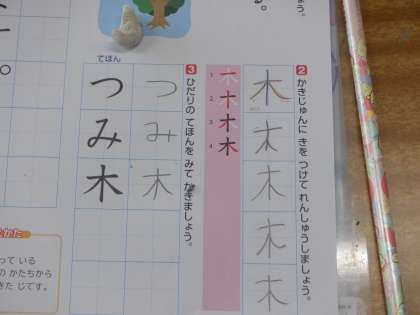 2 かきじゅんに きを つけて れんしゅうしましょう。
木
木
木
木
木
1 一
2 十
3 才
4 木
3 ひだりの てほんを みて かきましょう。
つみ木
てほん
つみ木
って いる
の かたちから
きた じです。